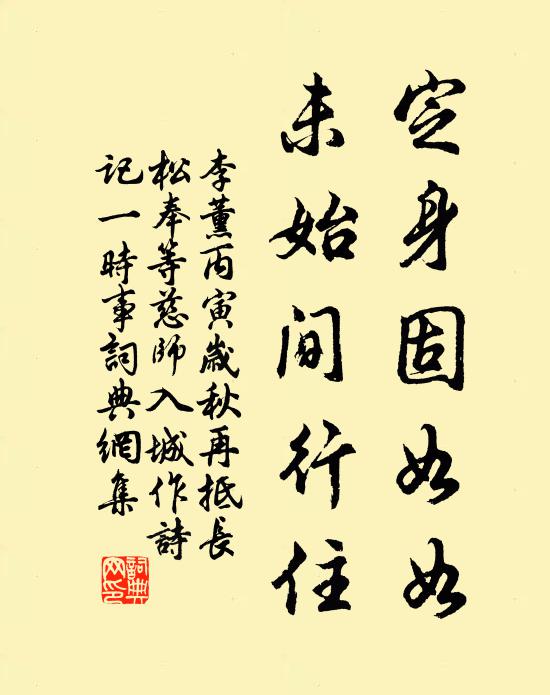 定身固如如
未始間行住
李薰丙寅歲秋再抵長
松奉等慈師入城作詩
記一時事詞典網集
詞典
网印